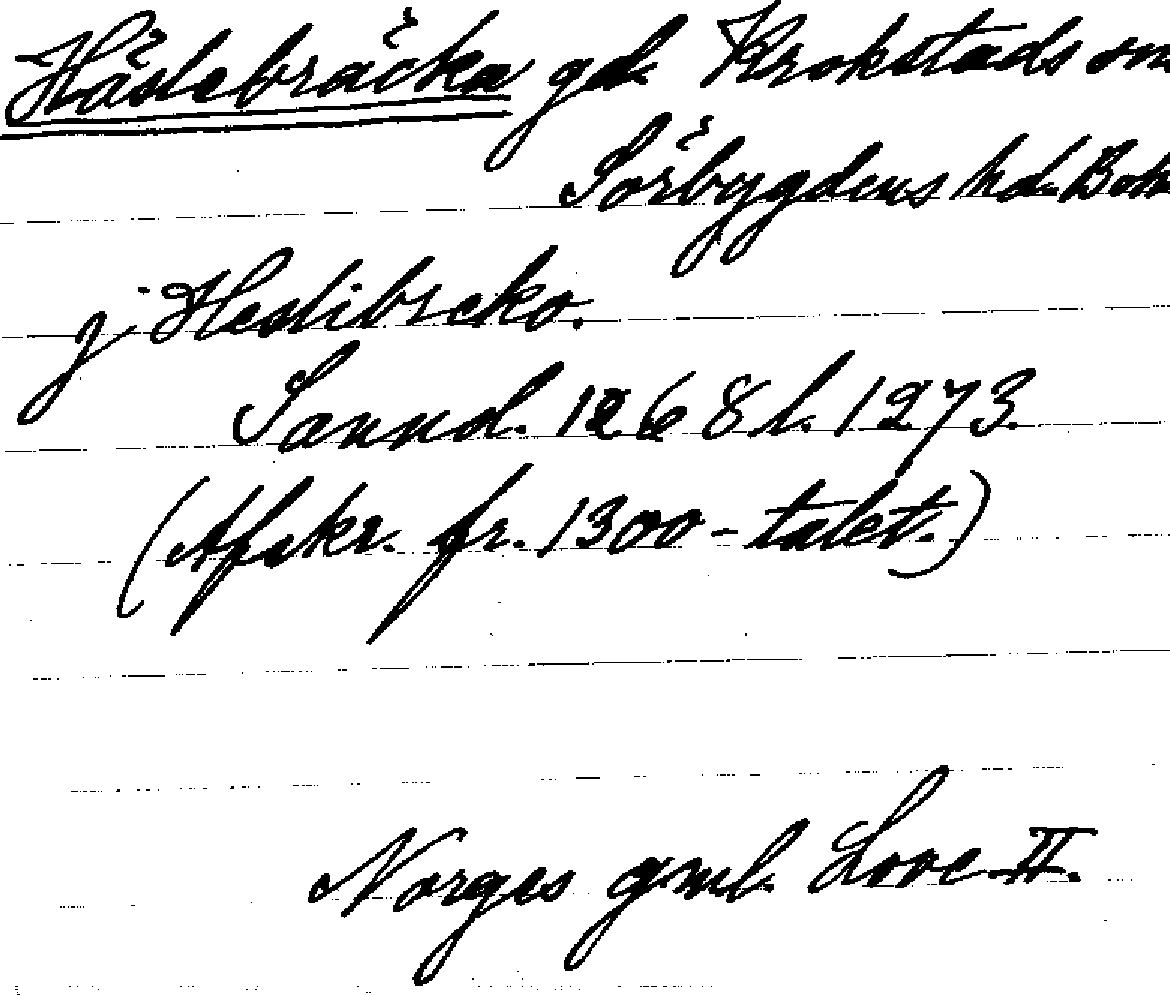 Hästebräcka gd. Krokstads sn
Sörbygdens hd. Boh
j Hestibreko.
Sannd. 1268 l. 1273.
(Afskr. fr. 1300-talet.)
Norges gml. Love II.